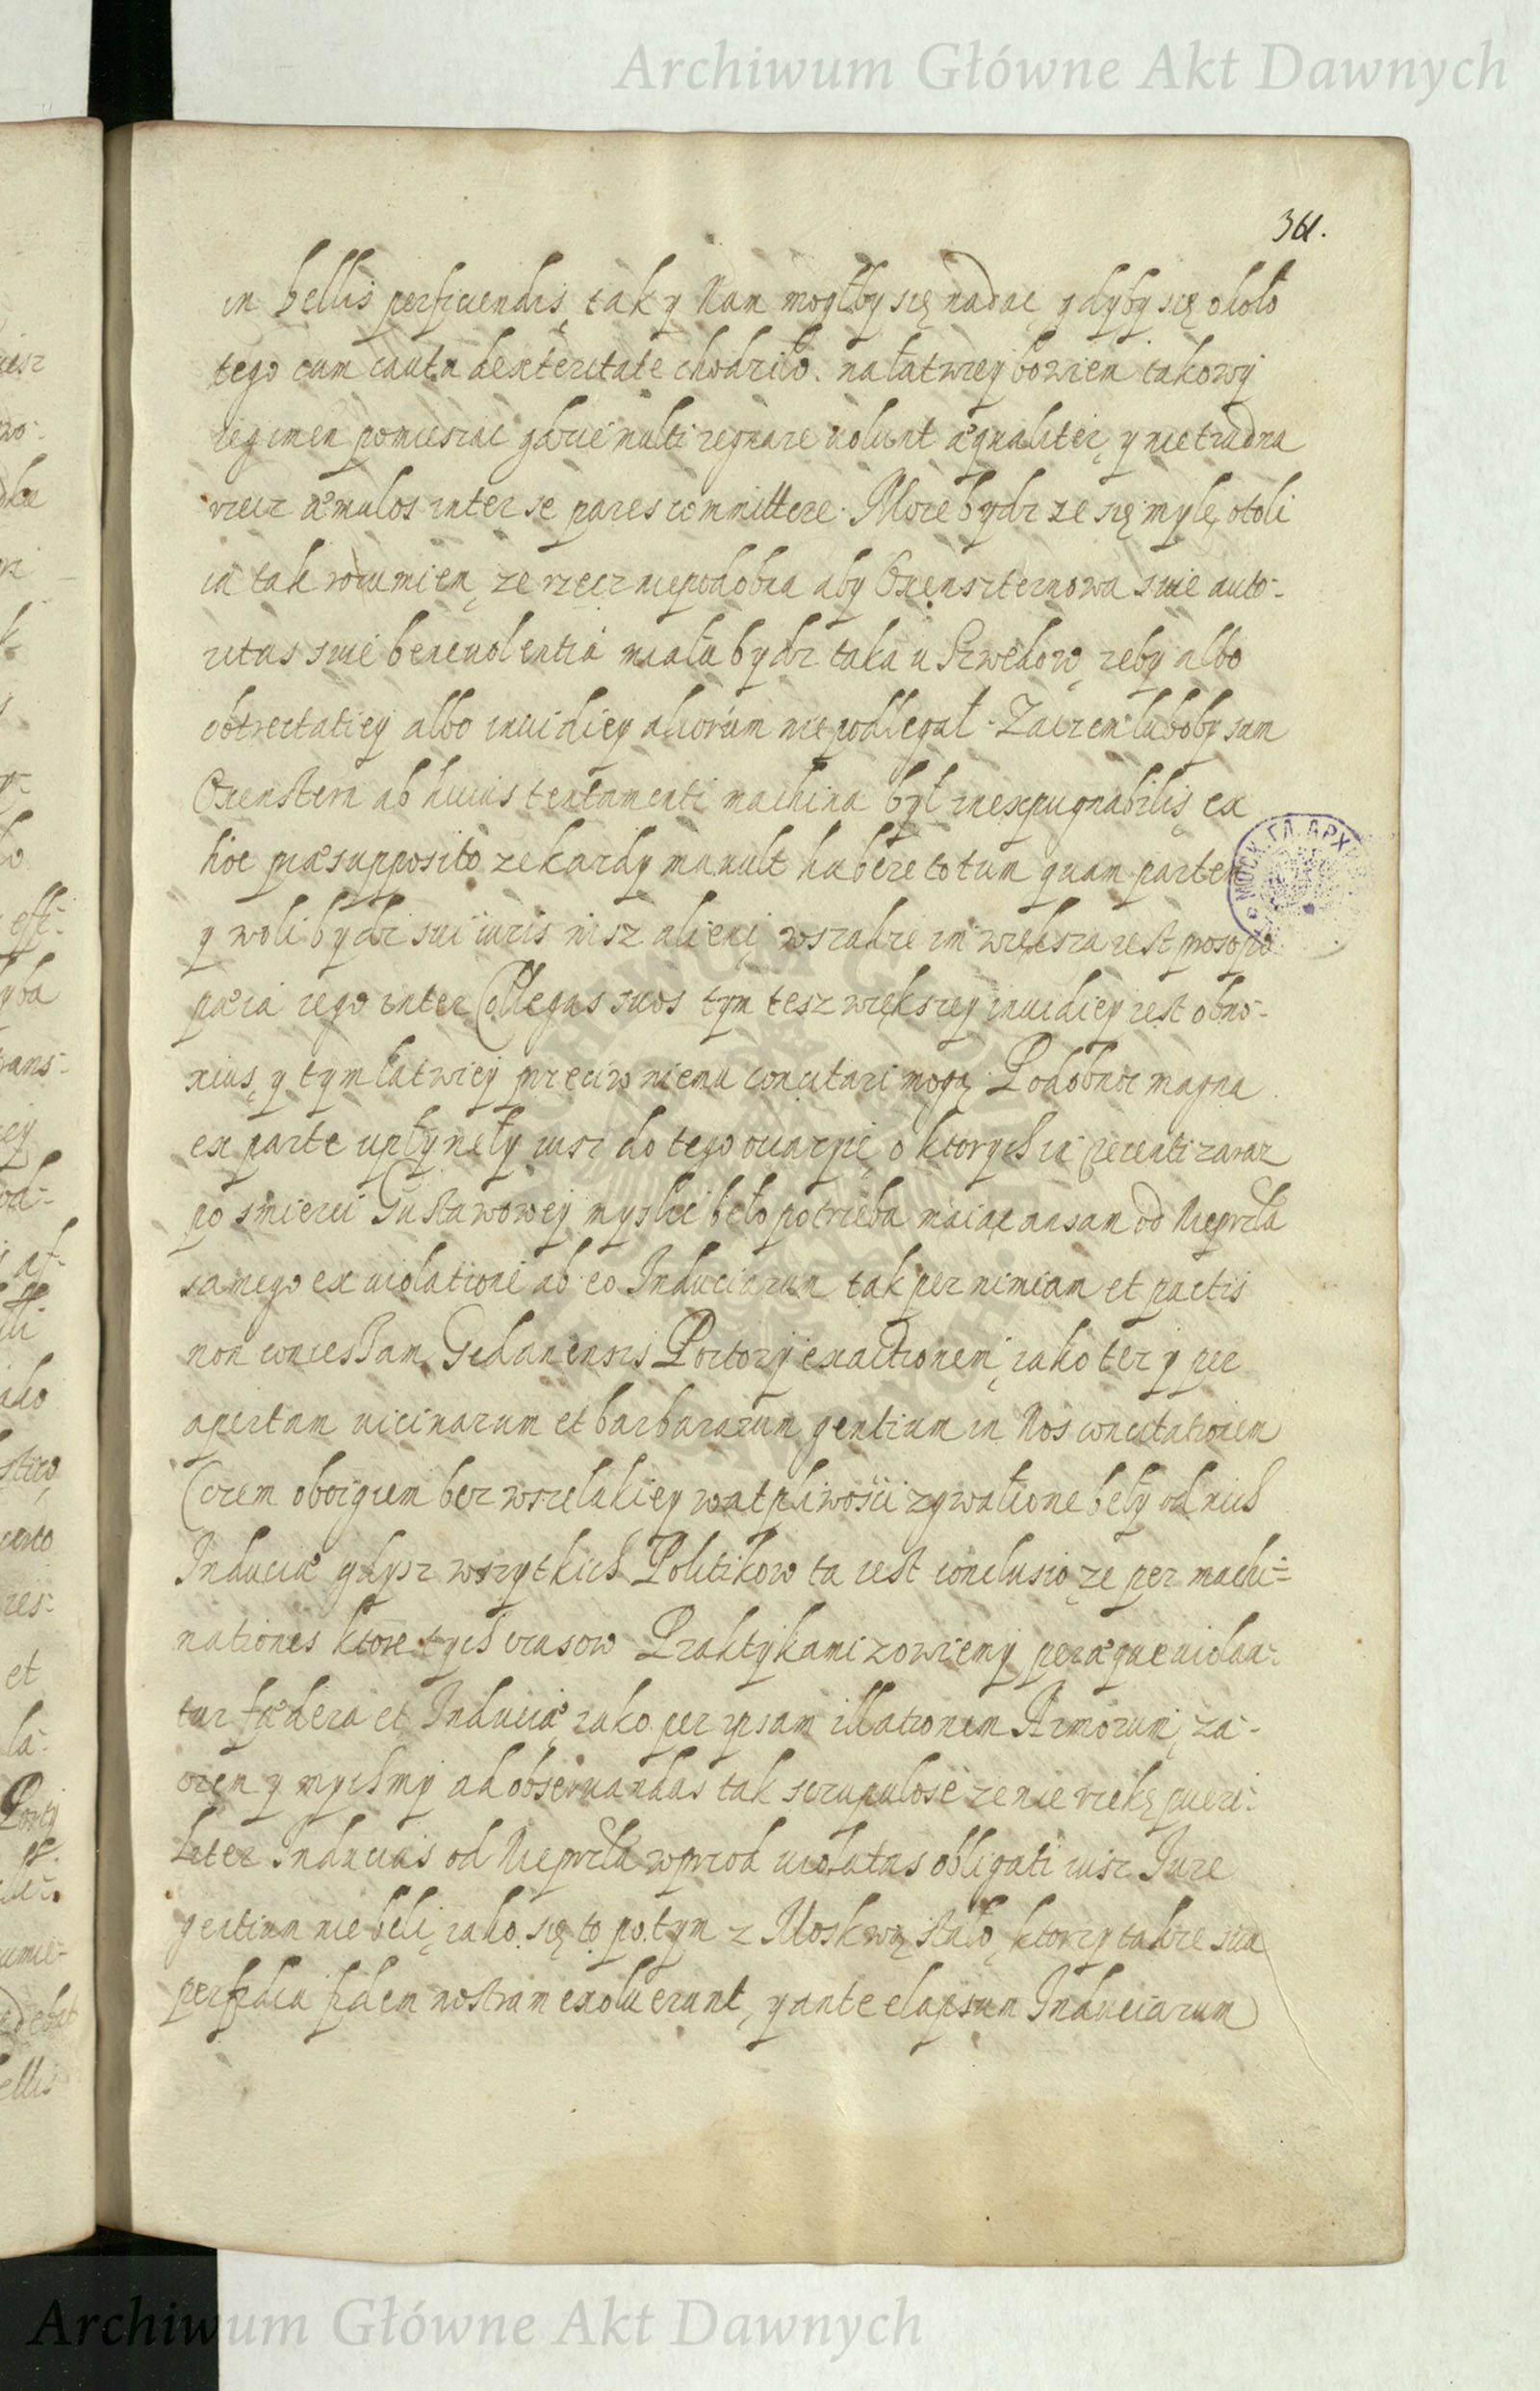 Archiwum Główne Akt Dawnych
361.
in bellis perficiendis, tak y Nam mogłby się nadać gdyby się około
tego cum cauta dexteritate chodziło. nałatwiey bowiem takowy
regimen pomieszać gdzie multi regnare uolunt æqualiter, y nietrudna
rzecz æmulos inter se pares committere. Moze bydz ze się mylę, otoli
ia tak rozumiem, ze rzecz niepodobna aby Oxenszternowa siue auto-
ritas siue beneuolentia miała bydz taka u Szwedow, zeby albo
obtrectatiey albo inuidiey aliorum nie podlegał. Zaczem luboby sam
Oxenstern ab huius tentamenti machina był inexpugnabilis, ex
hoc præsupposito ze kazdy mauult habere totum quam partem
y woli bydz sui iuris nisz alieni, wszakze im większa iest prosopo
pæia iego inter Collegas suos tym tesz większey inuidiey iest obno-
xius, y tym łatwiey przeciw niemu concitari mogą. Podobnoc magna
ex parte upłynęły iusz do tego occasiae, o ktorych ia recenti zaraz
po smierci Gustawowey myslić beło potrzeba maiąc ansam od Nieprzla
samego ex uiolatione ab eo Induciarum tak per nimiam et pactis
non concessam Gedanensis Portorij exactionem, iako tez y per
apertam uicinarum et barbararum gentium in Nos concitationem
Czem oboygiem bez wszelakiey wątpliwości zgwałcone beły od nich
Induciæ gdysz wszytkich Politikow ta iest conclusio, ze per machi-
nationes ktore tych czasow Praktykami zowiemy peræque uiolan-
tur fædera et Induciæ, iako per ipsam illationem Armorum, za-
czem y mychmy ad obseruandas tak scrupulose ze nie rzekę pueri-
liter Inducias od Nieprzla wprzod uiolatas obligati iusz Jure
gentium nie beli, iako się to potym z Moskwą stało, ktorzy takze sua
perfidia fidem nostram exoluerunt, y ante elapsum Induciarum
Archiwum Główne Akt Dawnych